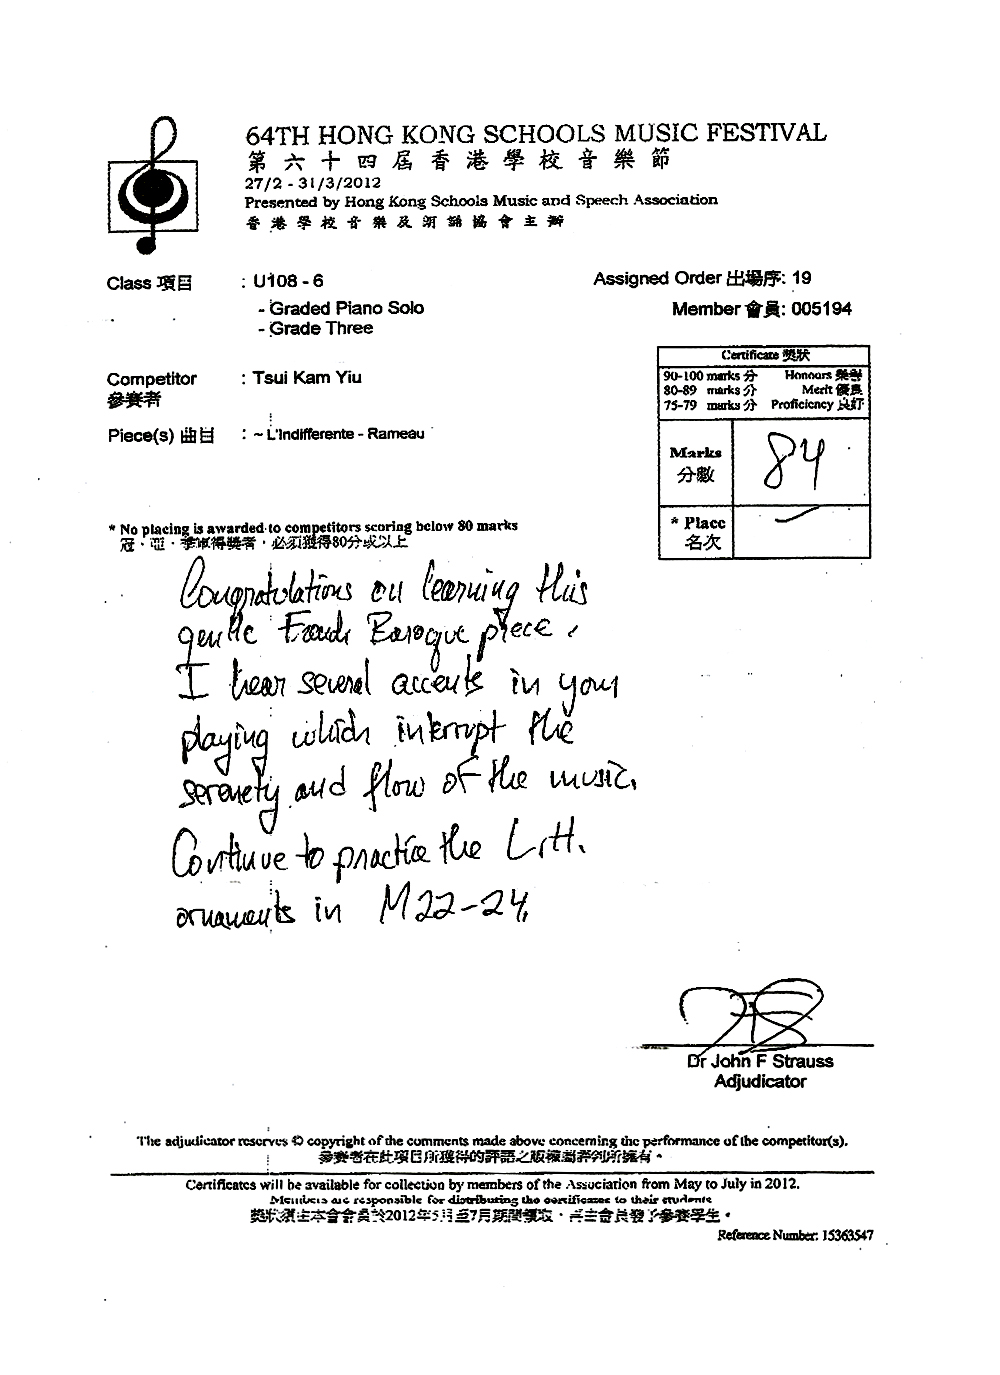 64TH HONG KONG SCHOOLS MUSIC FESTIVAL
第六十四屆香港學校音樂節
27/2 - 31/3/2012
Presented by Hong Kong Schools Music and Speech Association
香港學校音樂及朗誦協會主辦
Class 項目 : U108 - 6
- Graded Piano Solo
- Grade Three
Assigned Order 出場序: 19
Member 會員: 005194
Competitor : Tsui Kam Yiu
參賽者
Piece(s) 曲目 : ~ L'Indifferente - Rameau
Certificate 獎狀
90-100 marks 分 Honours 榮譽
80-89 marks 分 Merit 優良
75-79 marks 分 Proficiency 良好
Marks 84
分數
* Place —
名次
* No placing is awarded to competitors scoring below 80 marks
冠、亞、季軍得獎者,必須獲得80分或以上
Congratulations on learning this
gentle French Baroque piece.
I hear several accents in your
playing which interrupt the
serenety and flow of the music.
Continue to practice the L.H.
ornaments in M22-24.
Dr John F Strauss
Adjudicator
The adjudicator reserves © copyright of the comments made above concerning the performance of the competitor(s).
參賽者在此項目所獲得的評語之版權為評判所擁有。
Certificates will be available for collection by members of the Association from May to July in 2012.
Members are responsible for distributing the certificates to their students
獎狀須由本會會員於2012年5月至7月期間領取,再由會員發予參賽學生。
Reference Number: 15363547